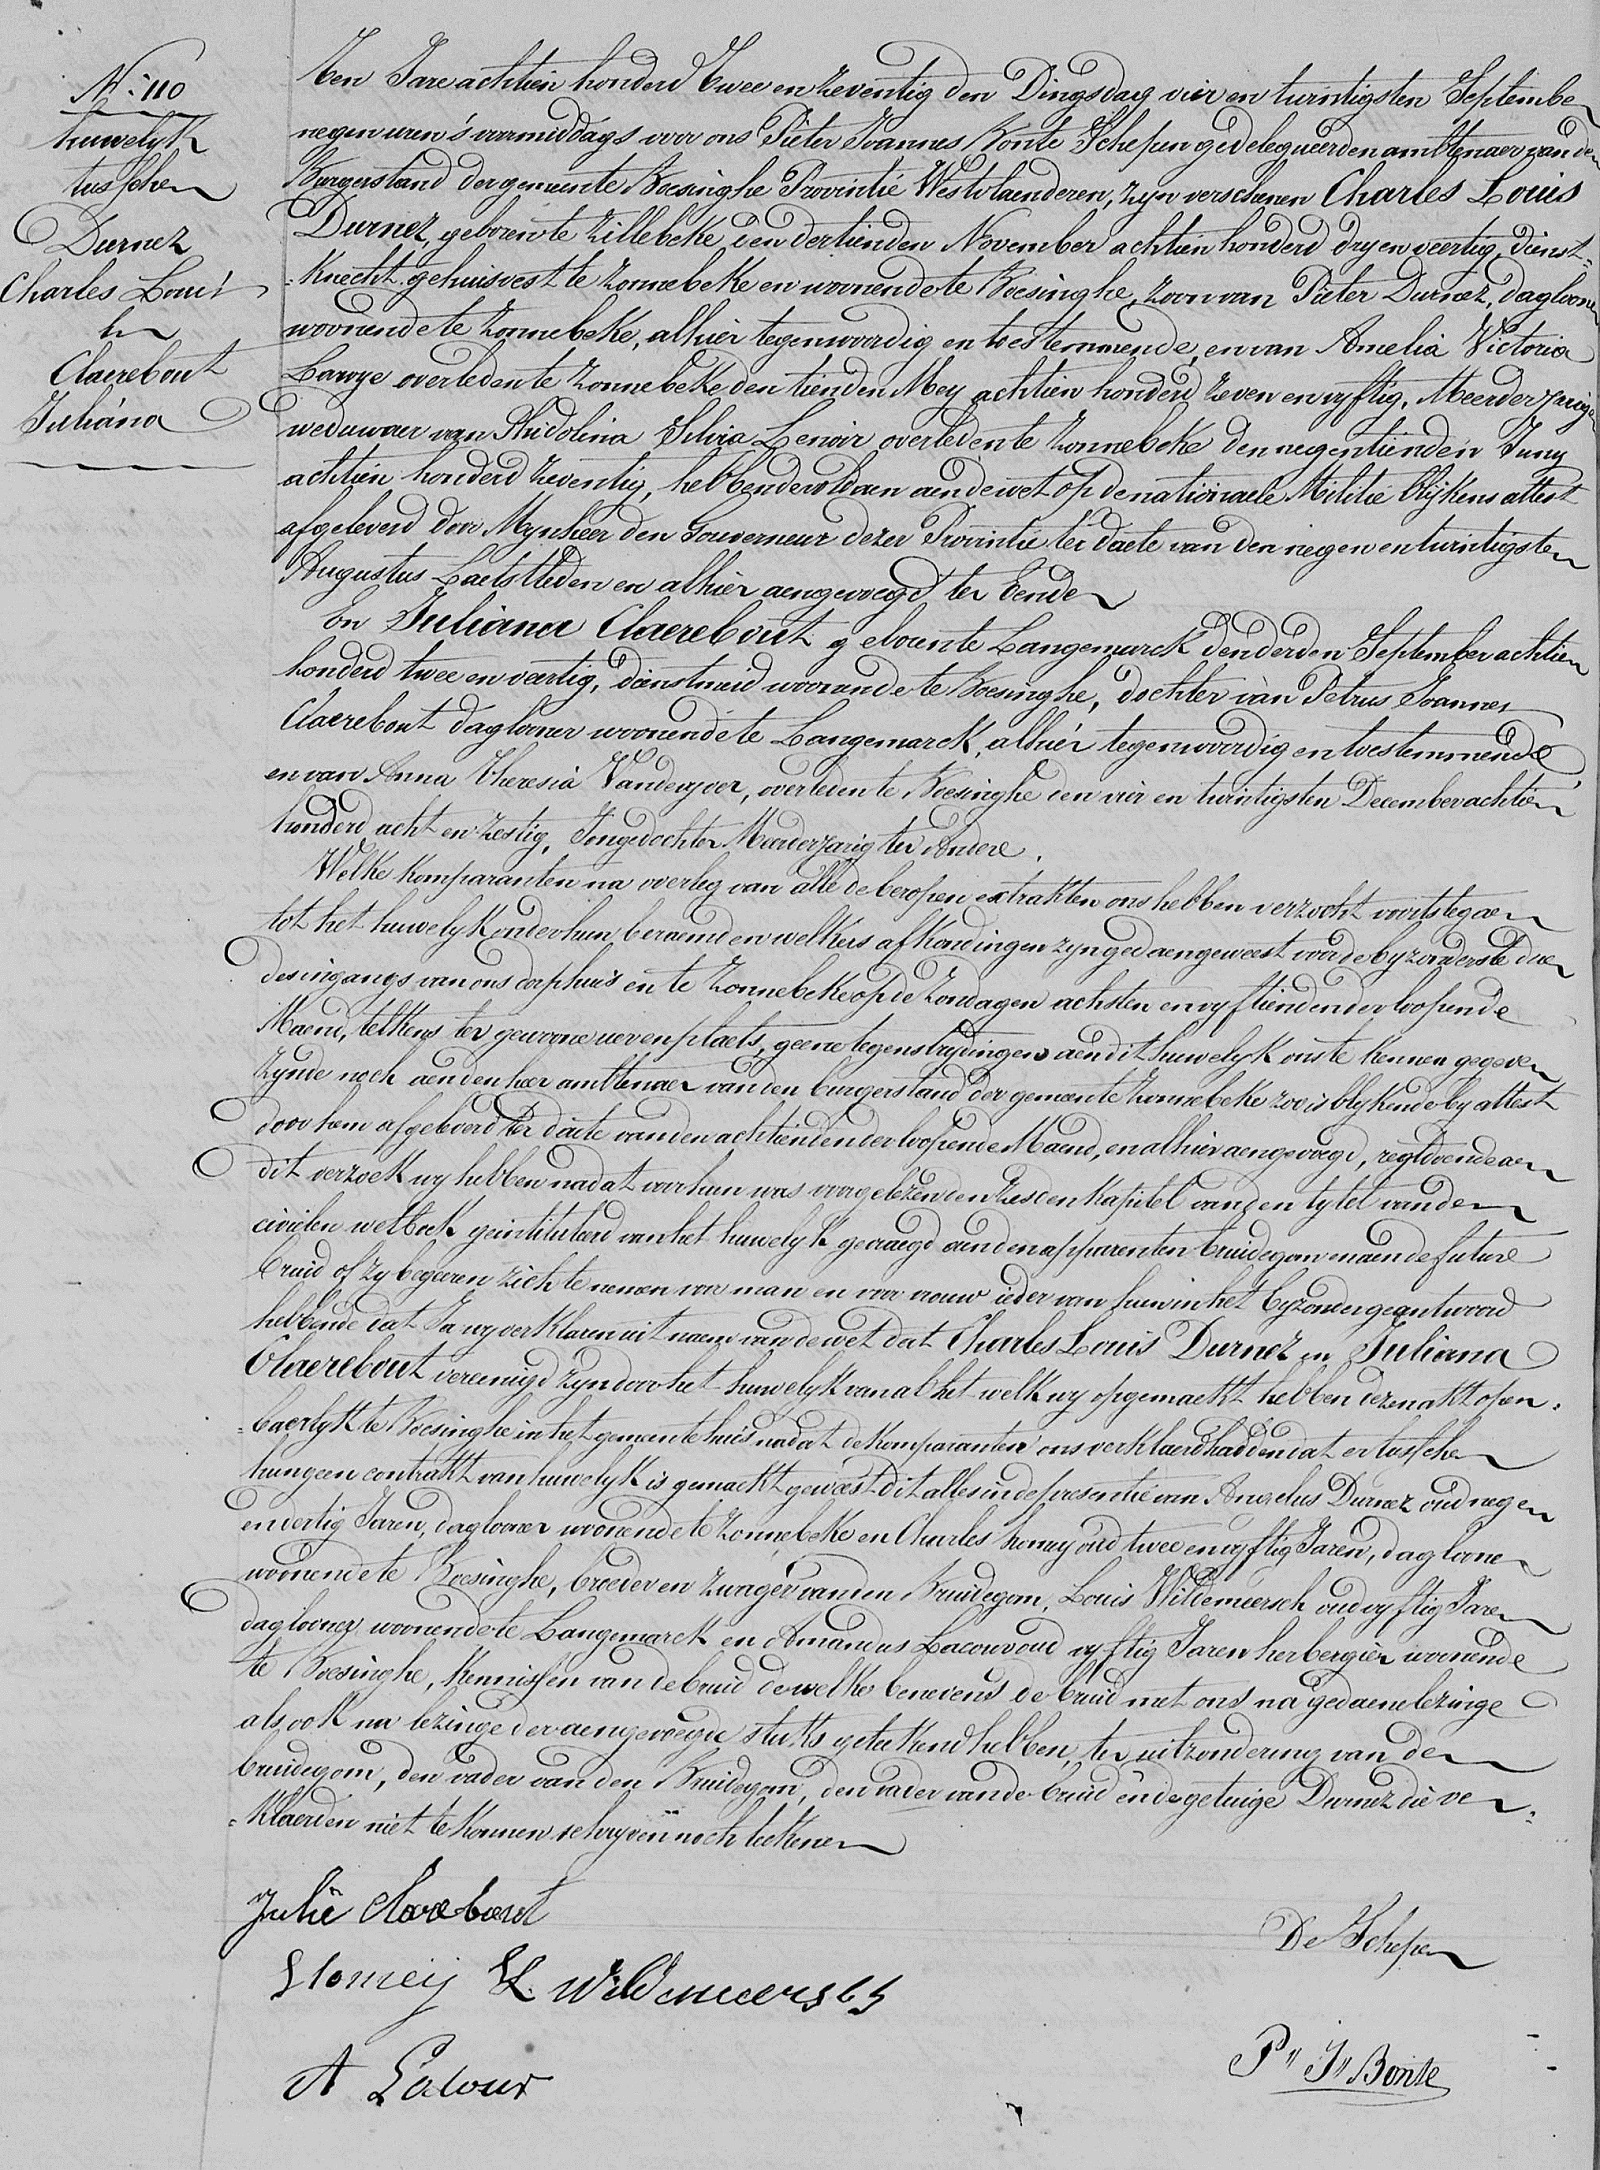 N.° 110
huwelyk
tusschen
Durnez
Charles Louis
En
Claerebout
Juliana
Ten Jare achtien honderd Twee en zeventig den Dingsdag vier en twintigsten September
negen uren 's voormiddags voor ons Pieter Joannes Bonte Schepen gedelegueerden ambtenaer van den
Burgerstand der gemeente Boesinghe Provintie Westvlaenderen, zyn verschenen Charles Louis
Durnez, geboren te Zillebeke den dertienden November achtien honderd dry en veertig, dienst=
=Knecht gehuisvest te Zonnebeke en woonende te Boesinghe, zoon van Pieter Durnez, dagloner
woonende te Zonnebeke, alhier tegenwoordig en toestemmende, en van Amelia Victoria
overleden te Zonnebeke den tienden Mey achtien honderd zeven en vyftig, Meerderjarige
weduwaer van Silvia Lenoir overleden te Zonnebeke den negentienden Juny
achtien honderd zeventig, hebbende voldaen aen de wet op de nationaele Militie blykens attest
afgeleverd door Mynheer den Gouverneur dezer Provintie ter daete van den negen en twintigsten
Augustus Laetstleden en alhier aengevoegd ter Eender
En Juliana Claerebout geboren te Langemarck den derden September achtien
honderd twee en veertig, dienstmeid woonende te Boesinghe, dochter van Petrus Joannes
Claerebout daglooner woonende te Langemarck, alhier tegenwoordig en toestemmende
en van Anna Theresia Vandewyver, overleden te Boesinghe den vier en twintigsten December achtien
honderd acht en zestig, Jongedochter Meerderjarig ter Andere.
Welke Komparanten na overleg van alle de beropen extrakten ons hebben verzocht voorts te gaen
tot het huwelyk onder hun beraemd en welkers afkondingen zyn gedaen geweest voor de byzonderste deur
des ingangs van ons dorphuis en te Zonnebeke op de Zondagen achsten en vyftienden der loopende
Maend, telkens ter gewoone uer en plaets, geene tegenstrydingen aen dit huwelyk ons te kennen gegeven
zynde noch aen den heer ambtenaer van den burgerstand der gemeente Zonnebeke zoo is blykende by attest
door hem afgeleverd ter daete van den achtienden der loopende Maend, en alhier aengevoegd, regtdoende aen
dit verzoek wy hebben nadat voor hun was voorgelezen den zesden Kapittel van den tytel van den
civielen wetboek geintituleerd van het huwelyk gevraegd aen den apparenten bruidegom en aen de future
bruid of zy begeeren zich te nemen voor man en voor vrouw ieder van hun in het byzonder geantwoord
hebbende dat Ja wy verklaren uit naem van de wet dat Charles Louis Durnez en Juliana
Claerebout vereenigd zyn door het huwelyk van al het welk wy opgemaekt hebben dezen akt open=
=baerlyk te Boesinghe in het gemeentehuis nadat de Komparanten ons verklaerd hadden dat er tusschen
hun geen contrakt van huwelyk is gemaekt geweest dit alles in de presentie van Angelus Durnez oud negen
en dertig Jaren, daglooner woonende te Zonnebeke en Charles homey oud twee en vyftig Jaren, daglooner
woonende te Boesinghe, broeder en zwager van den Bruidegom, Louis Wildemeersch oud vyftig Jaren
daglooner woonende te Langemarck en Amandus Lacour oud vyftig Jaren herbergier woonende
te Boesinghe, Kennissen van de bruid dewelke benevens de bruid met ons na gedaene lezinge
als ook na lezinge der aengevoegde stukts geteekend hebben, ter uitzondering van den
bruidegom, den vader van den Bruidegom, den vader van de bruid en de getuige Durnez die ver=
=klaerden niet te konnen schryven noch teekenen
Julie Clarebout
De Schepen
L Wildemeersch
A Lacour
P" J" Bonte